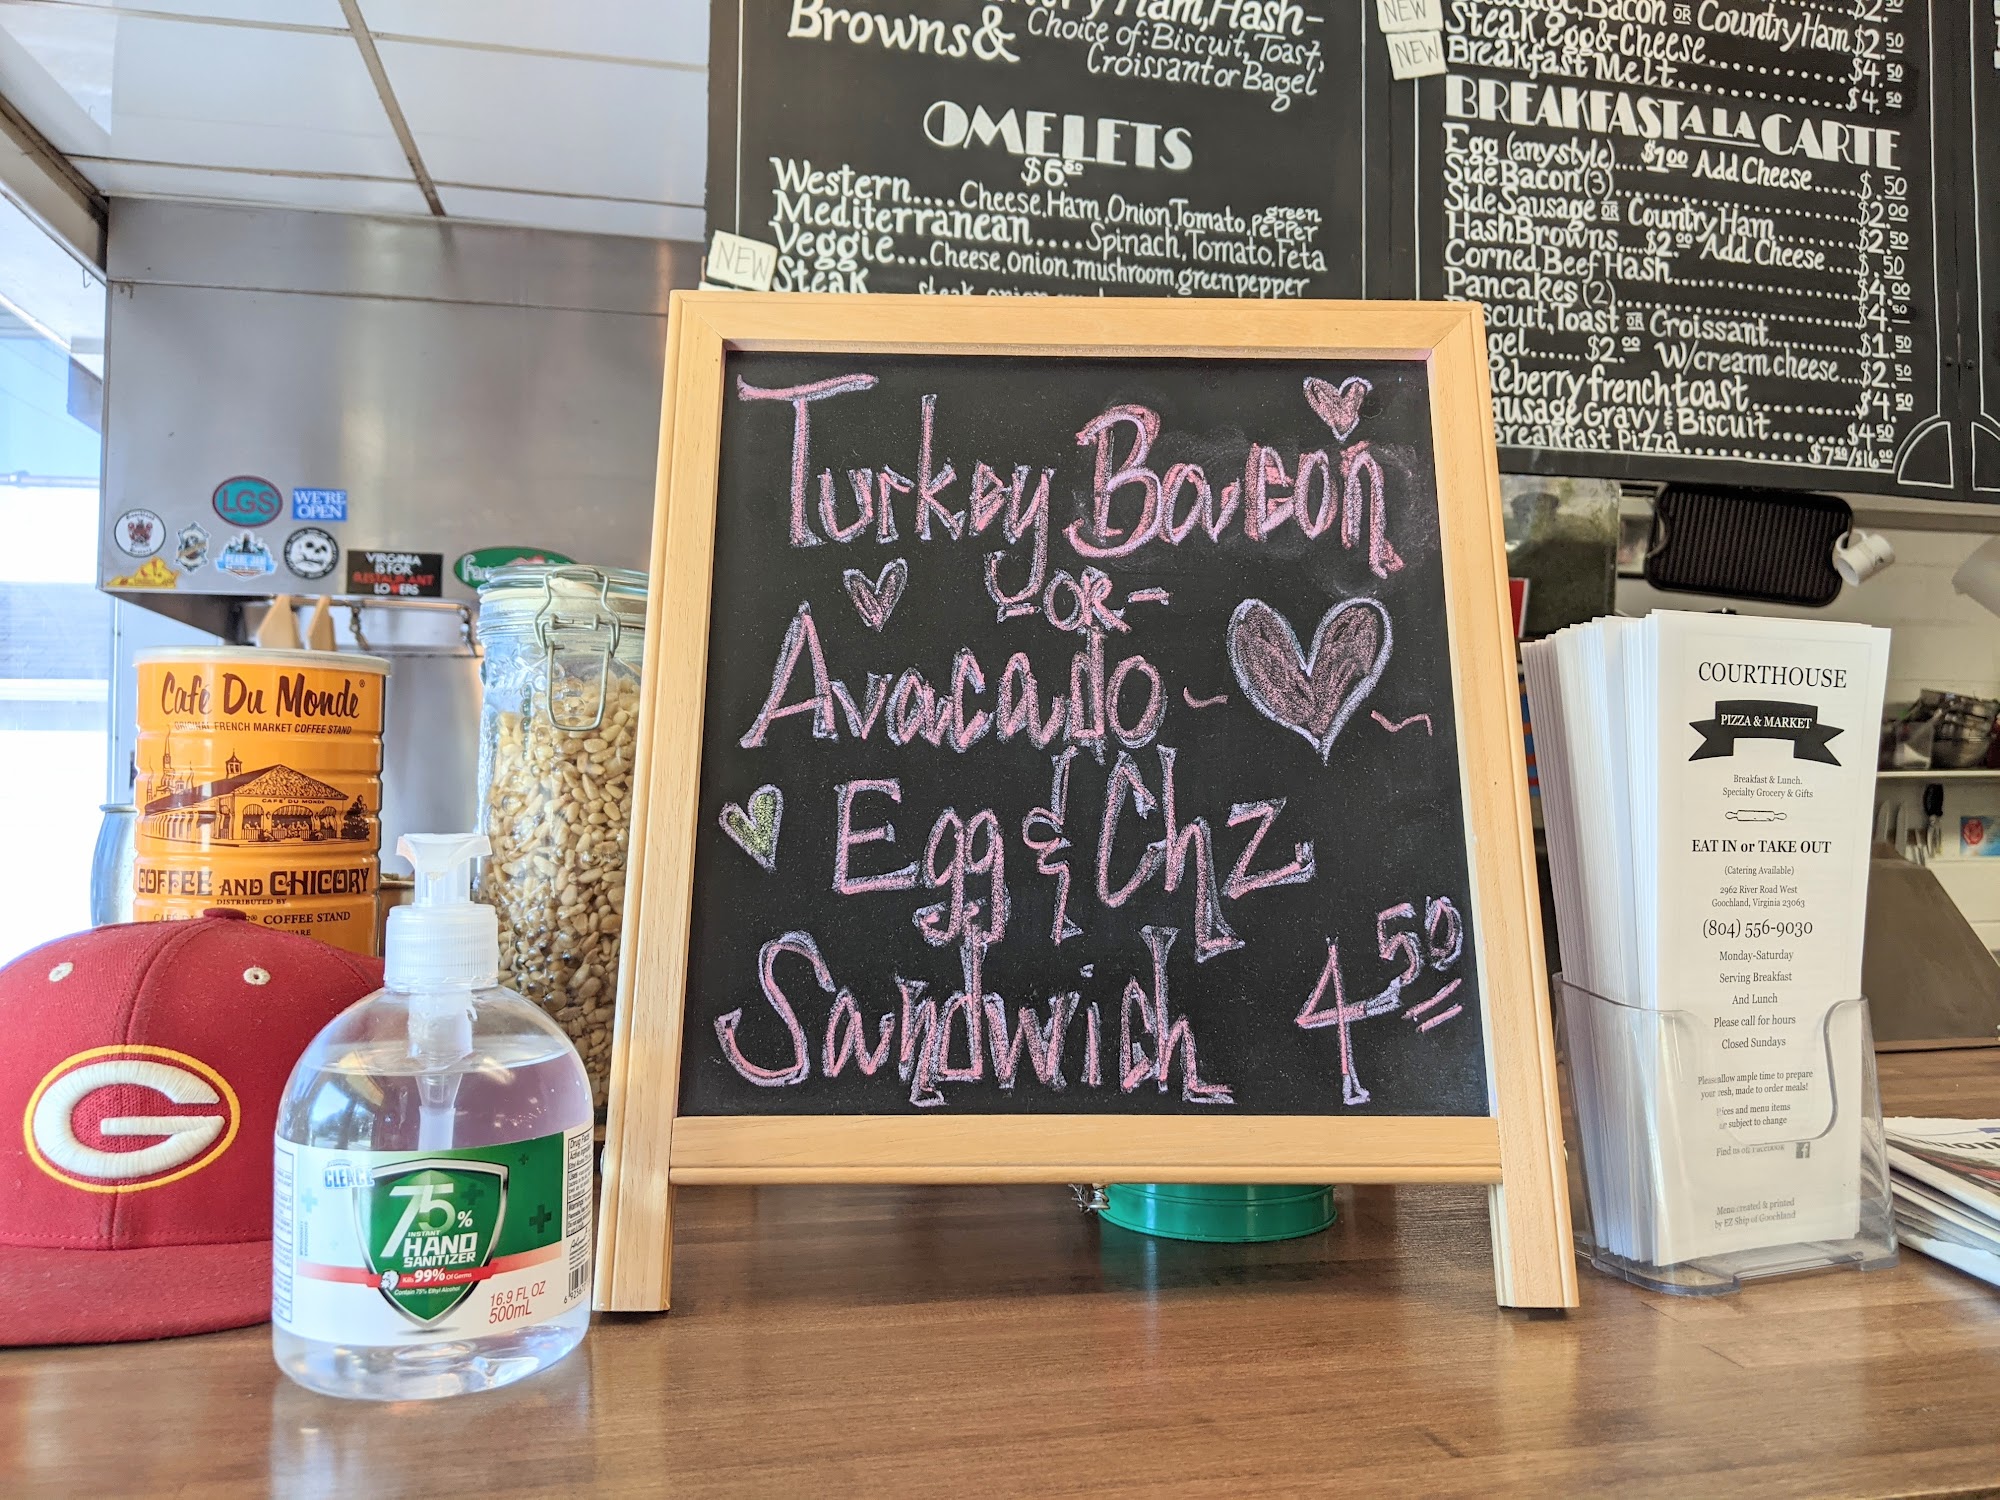 Ham, Hash-
Browns &
Choice of: Biscuit, Toast,
Croissant or Bagel
OMELETS
$6.50
Western.... Cheese, Ham, Onion, Tomato, green pepper
Mediterranean.... Spinach, Tomato, Feta
Veggie... Cheese, onion, mushroom, green pepper
NEW Steak
steak, onion
NEW
Bacon OR Country Ham $2.50
Steak, Egg & Cheese........ $4.50
NEW Breakfast Melt........ $4.50
BREAKFAST A LA CARTE
Egg (any style).... $1.00 Add Cheese..... $.50
Side Bacon (3)........ $2.00
Side Sausage OR Country Ham........ $2.50
Hash Browns.... $2.00 Add Cheese.... $.50
Corned Beef Hash........ $4.00
Pancakes (2)........ $4.50
scuit, Toast OR Croissant........ $1.50
gel...... $2.00 W/cream cheese... $2.50
eberry french toast........ $4.50
ausage Gravy & Biscuit........ $4.50
Breakfast Pizza........ $7.50/$16.00
Turkey Bacon
-OR-
Avocado
Egg & Chz
Sandwich 4.50
LGS
WE'RE
OPEN
PEARL JAM
VIRGINIA
IS FOR
RESTAURANT
LOVERS
Café Du Monde®
ORIGINAL FRENCH MARKET COFFEE STAND
CAFE DU MONDE
COFFEE AND CHICORY
DISTRIBUTED BY
COFFEE STAND
G
CLEACE
75%
INSTANT
HAND
SANITIZER
Kills 99% Of Germs
Contain 75% Ethyl Alcohol
16.9 FL OZ
500mL
Drug Facts
COURTHOUSE
PIZZA & MARKET
Breakfast & Lunch.
Specialty Grocery & Gifts
EAT IN or TAKE OUT
(Catering Available)
2962 River Road West
Goochland, Virginia 23063
(804) 556-9030
Monday-Saturday
Serving Breakfast
And Lunch
Please call for hours
Closed Sundays
Please allow ample time to prepare
your fresh, made to order meals!
Prices and menu items
subject to change
Find us on Facebook
Menu created & printed
by EZ Ship of Goochland